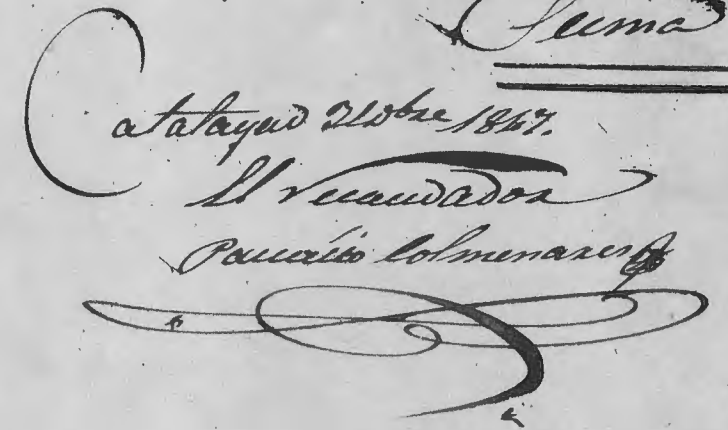 Suma
Calatayud 31 Dbre 1847.
El recaudador
Colmenares